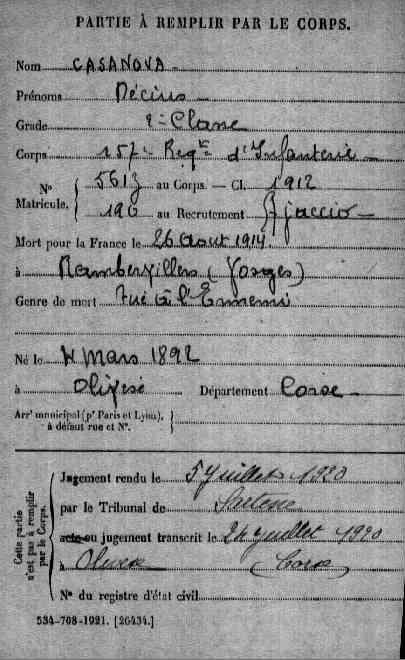 PARTIE À REMPLIR PAR LE CORPS.
Nom CASANOVA
Prénoms Décius
Grade 2e Classe
Corps 157e Regt d'Infanterie
Nº Matricule. 5613 au Corps. — Cl. 1912
190 au Recrutement Ajaccio
Mort pour la France le 26 Aout 1914.
à Rambervillers (Vosges)
Genre de mort Tué à l'Ennemi
Né le 4 Mars 1892
à Olivese Département Corse
Arrt municipal (pr Paris et Lyon),
à défaut rue et Nº.
Cette partie
n'est pas à remplir
par le Corps.
Jugement rendu le 5 Juillet 1920
par le Tribunal de Sartene
acte ou jugement transcrit le 24 Juillet 1920
à Olivese (Corse)
Nº du registre d'état civil
534-708-1921. [26434.]